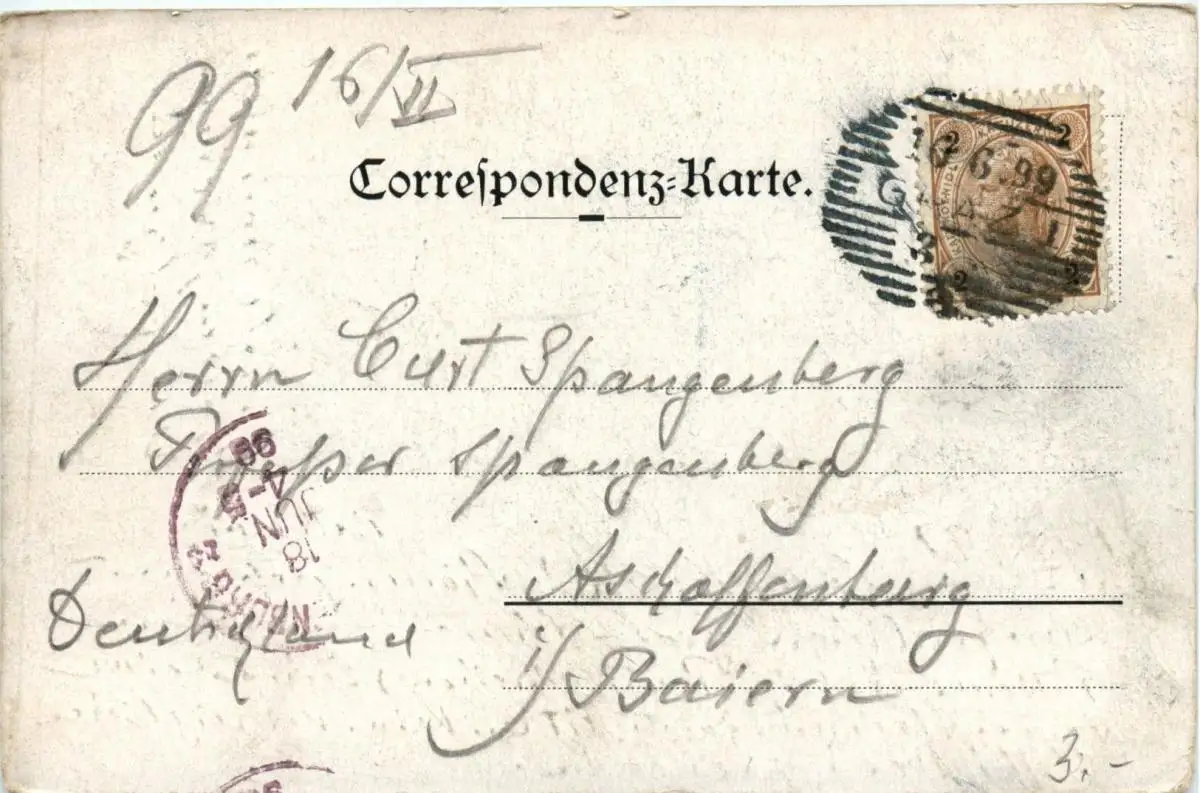 99 16/VI
Correſpondenz-Karte.
2 2
6 99
2 2
Herrn Curt Spangenberg
Professor Spangenberg
99
4-5
JUN.
18
Aschaffenburg
Deutschland
i/ Baiern
3.-